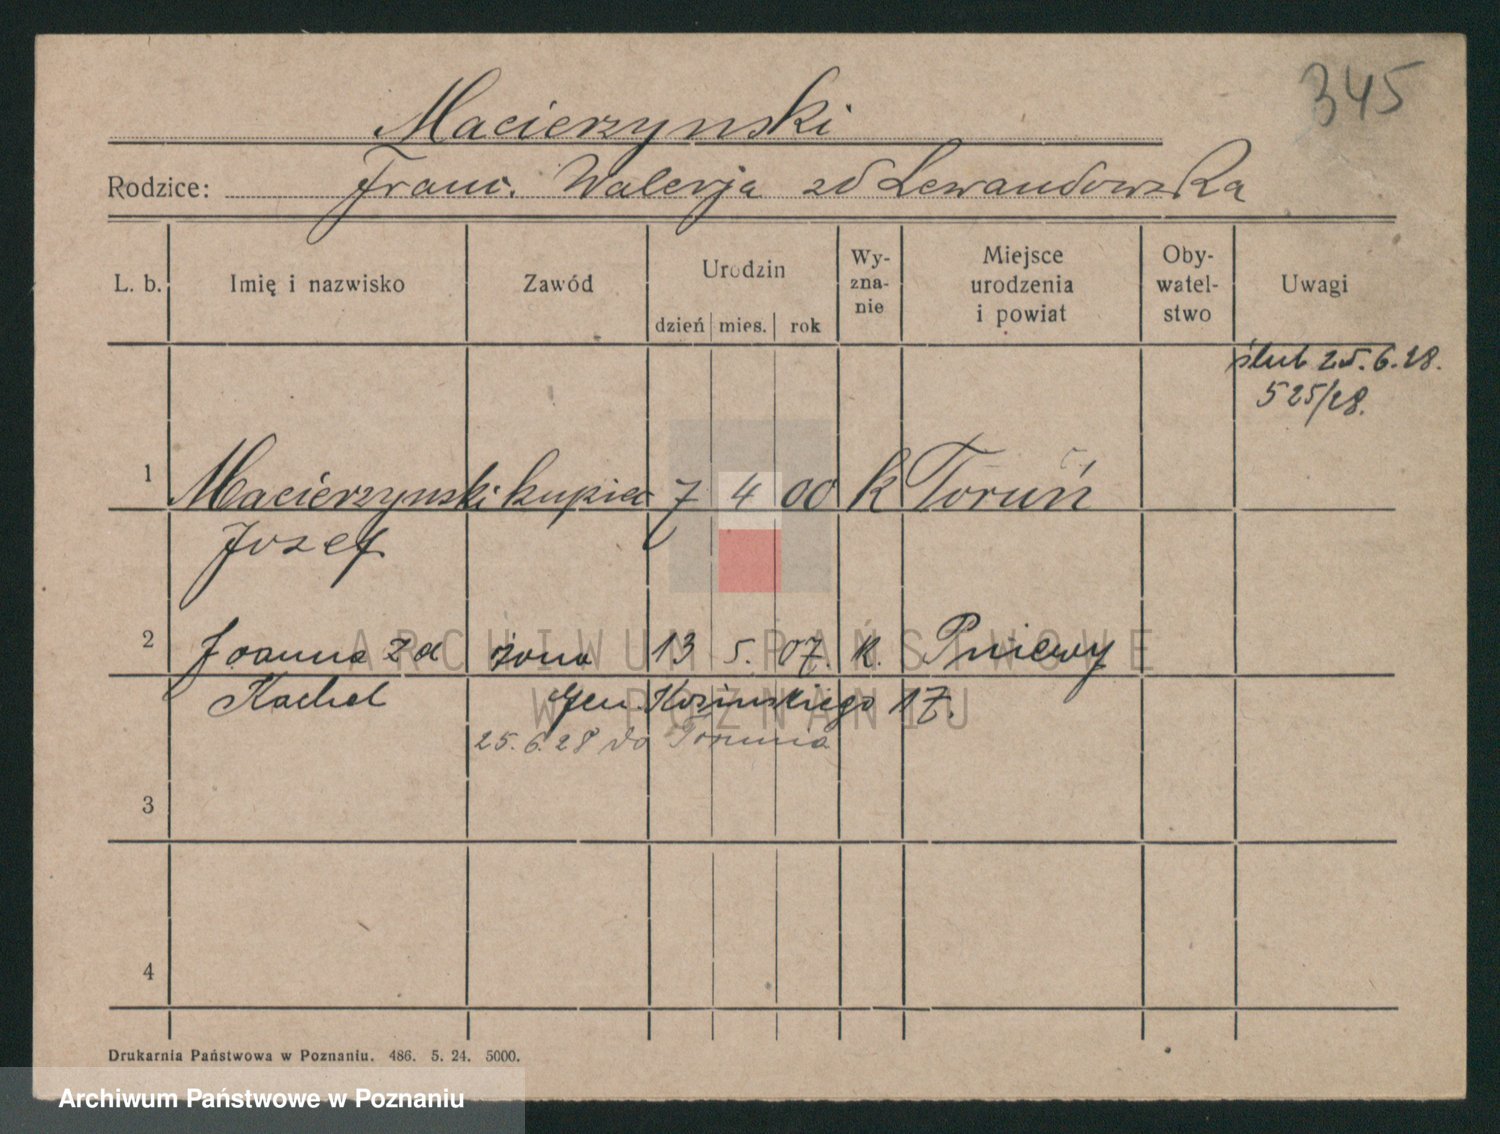 345
Macierzynski
Rodzice: Franc. Walerja zd Lewandowska
L. b. Imię i nazwisko Zawód Urodzin dzień mies. rok Wyznanie Miejsce urodzenia i powiat Obywatelstwo Uwagi
ślub 25.6.28.
525/28.
1 Macierzynski kupiec 7 4 00 k Toruń
Jozef
2 Joanna zd żona 13 5. 07. k. Pniewy
Kachel Gen. Kosinskiego 17.
25.6.28 do Torunia
3
4
ARCHIWUM PAŃSTWOWE
W POZNANIU
Drukarnia Państwowa w Poznaniu. 486. 5. 24. 5000.
Archiwum Państwowe w Poznaniu